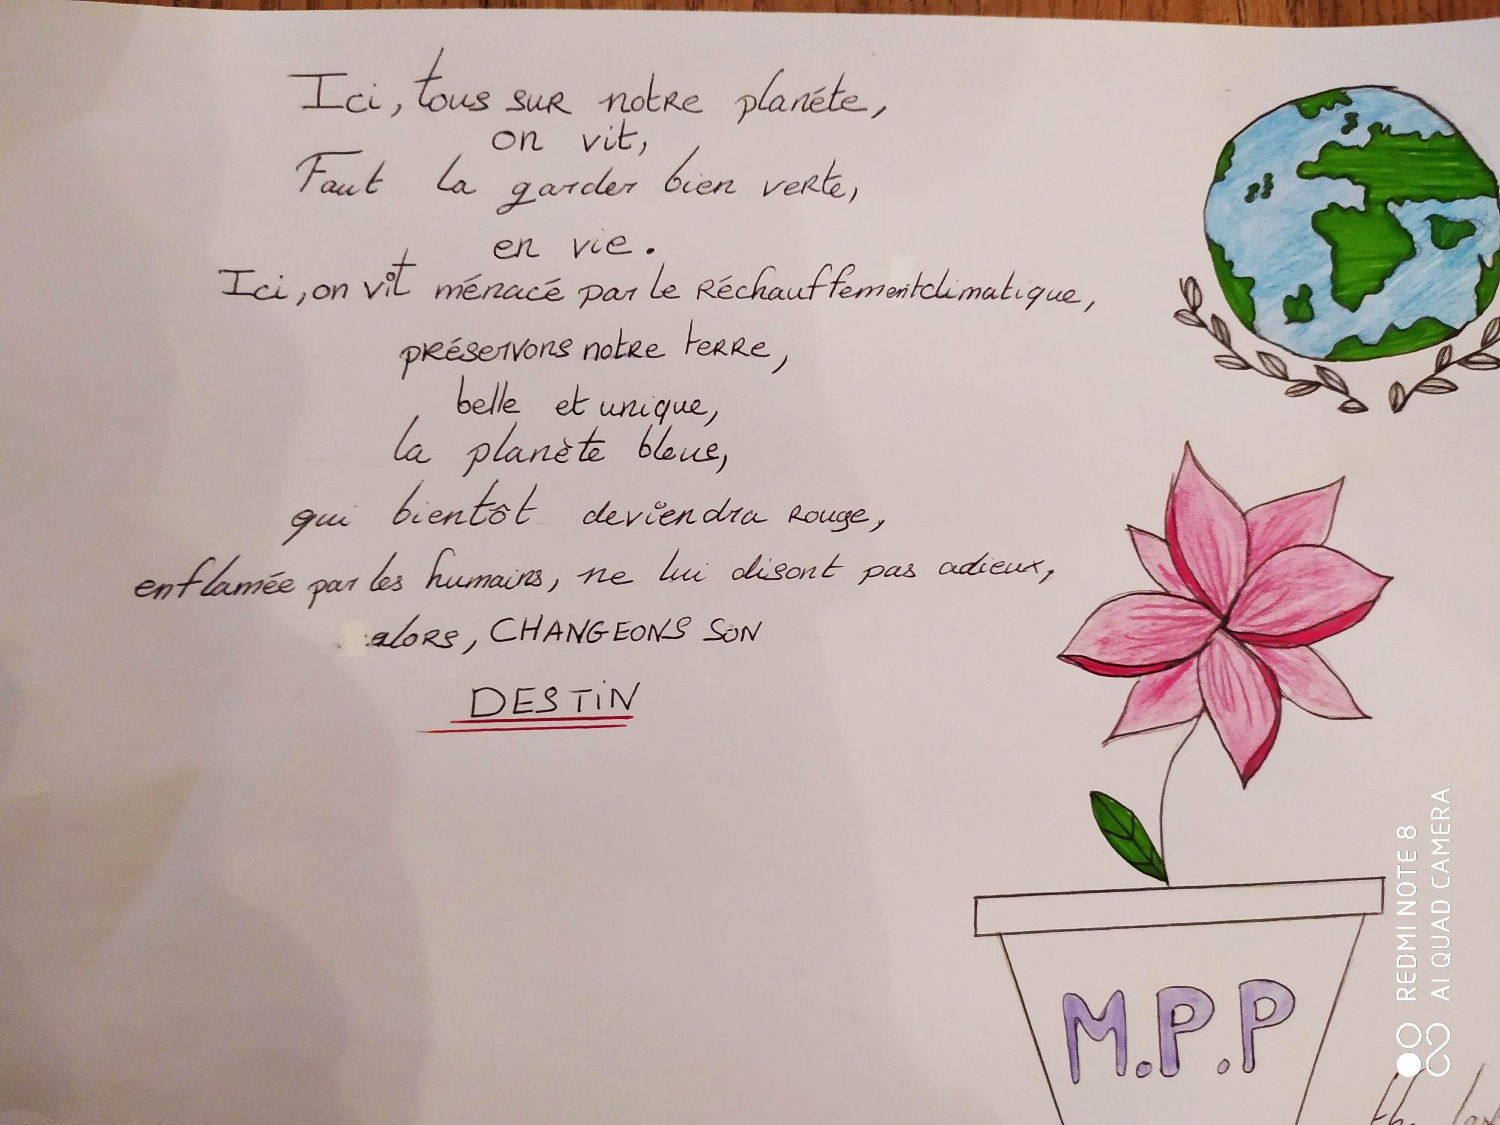 Ici, tous sur notre planéte,
on vit,
Faut la garder bien verte,
en vie.
Ici, on vit ménacé par le réchauffement climatique,
préservons notre terre,
belle et unique,
la planète bleue,
qui bientôt deviendra rouge,
enflamée par les humains, ne lui disont pas adieux,
alors, CHANGEONS SON
DESTIN
M.P.P
REDMI NOTE 8
AI QUAD CAMERA